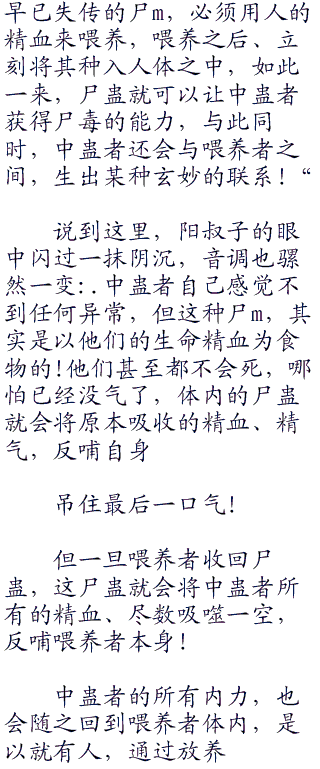 早已失传的尸m，必须用人的
精血来喂养，喂养之后、立
刻将其种入人体之中，如此
一来，尸蛊就可以让中蛊者
获得尸毒的能力，与此同
时，中蛊者还会与喂养者之
间，生出某种玄妙的联系！“
说到这里，阳叔子的眼
中闪过一抹阴沉，音调也骡
然一变:．中蛊者自己感觉不
到任何异常，但这种尸m，其
实是以他们的生命精血为食
物的!他们甚至都不会死，哪
怕已经没气了，体内的尸蛊
就会将原本吸收的精血、精
气，反哺自身
吊住最后一口气!
但一旦喂养者收回尸
蛊，这尸蛊就会将中蛊者所
有的精血、尽数吸噬一空，
反哺喂养者本身!
中蛊者的所有内力，也
会随之回到喂养者体内，是
以就有人，通过放养